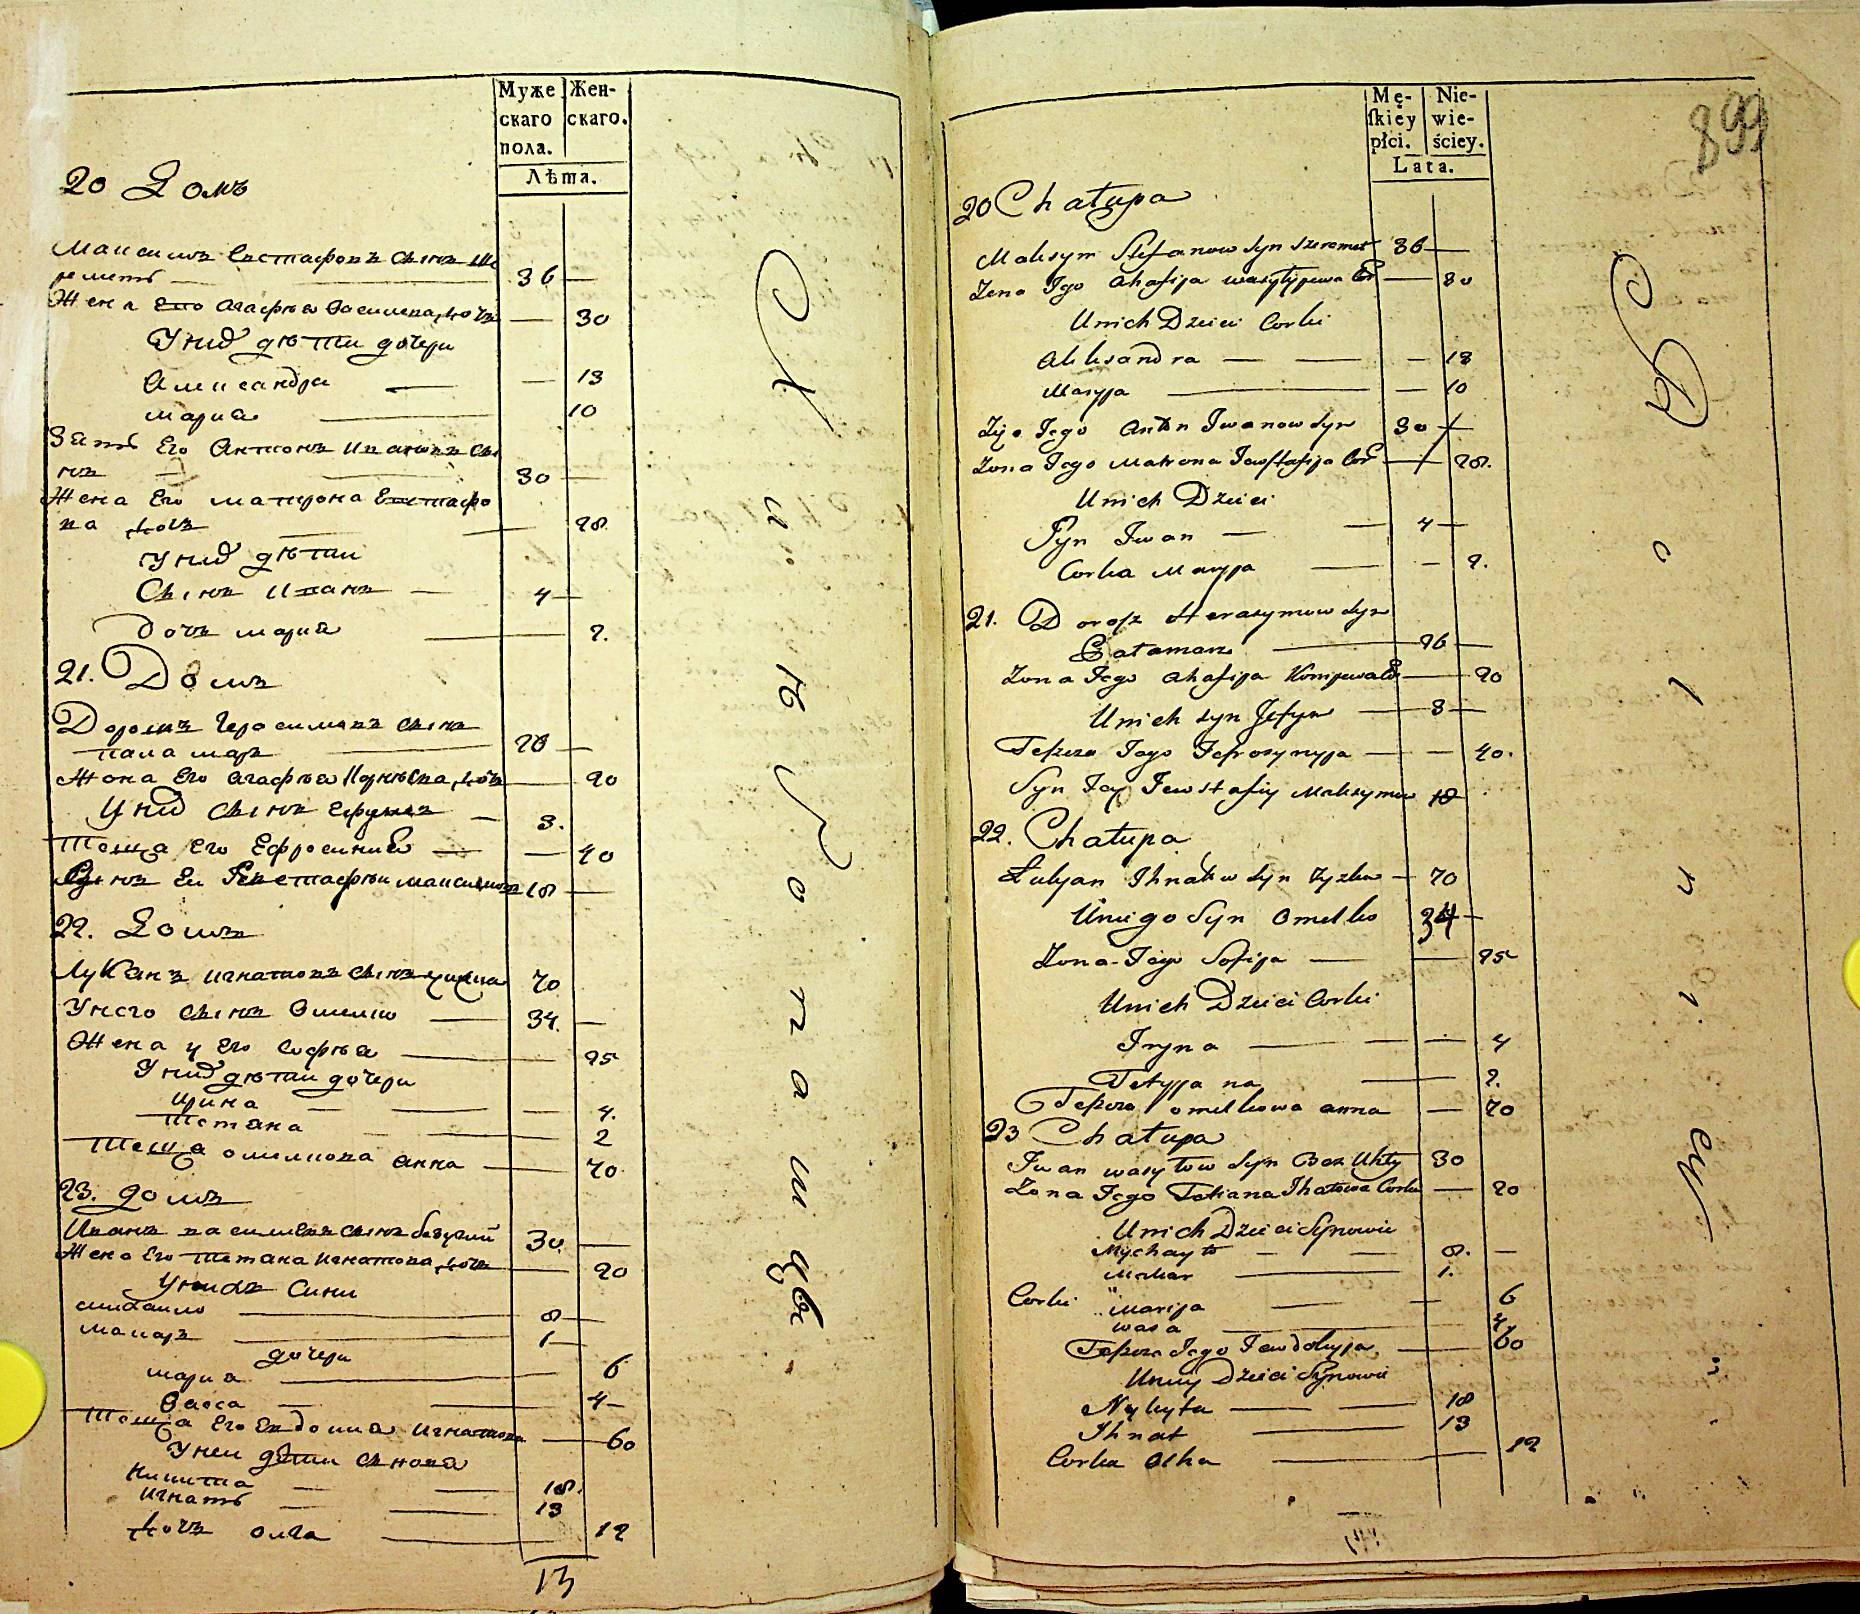 Муже
скаго
пола.
Жен-
скаго.
Лѣта.
20 Домъ
Максимъ Евстафовъ сынъ Ше
реметъ — 36 —
Жена Его Агафия Василева дочь — 30
У них дѣти дочери
Александра — — 13
Мариа — 10
Зать Его Антонъ Ивановъ сы
нъ — 30 —
Жена Его Матрона Евстафо
ва дочь — 28.
У них дѣти
Сынъ Иванъ — 4 —
Дочь Мариа — 2.
21. Домъ
Дорошъ Герасимовъ сынъ
паламаръ — 26 —
Жона Его Агафиа Корнѣева дочь — 20
У них сынъ Ефимъ — 3.
Теща Его Ефросиниа — — 40
Сынъ Еи Евстафии Максимовъ 18 —
22. Домъ
Лукянъ Игнатовъ сынъ 70
У него сынъ Омелко — 34. —
Жена у Его Софиа — 25
У них дѣти дочери
Ирина — — — 4.
Тетяна — 2
Теща Омелкова Анна — 70
23. Домъ
Иванъ Василевъ сынъ Безухий 30. —
Жена Его Тетяна Игнатова дочь — 20
У нихъ Сини
Михайло — 8 —
Макаръ — 1 —
дочери
Мариа — 6
Васса — 4 —
Теща Его Евдокиа Игнатова — 60
У неи дѣти сынова
Никита — — 18.
Игнатъ — — 13
Дочь Олга — 12
13
С к и т ѣ Р о п а ш ц ѣ
Mę-
ſkiey
płci.
Nie-
wie-
ściey.
Lata.
899
20 Chałupa
Maksym Stefanow Syn Szeremet 36 —
Zona Jego Ahafija Wasylijewa Cor — 30
U nich Dzieci Corki
Aleksandra — — — 13
Maryja — — 10
Zyc Jego Anton Iwanow Syn 30 —
Zona Jego Matrona Jewstafija Cor — 28.
U nich Dzieci
Syn Iwan — — 4 —
Corka Maryja — — 2.
21. Dorosz Herasymow Syn
Pałamar — 26 —
Zona Jego Ahafija Kornijewa Co — 20
U nich Syn Jefym — 3 —
Teszcza Jego Jefrosynyja — — 40.
Syn Jey Jewstafiy Maksymow 18
22. Chałupa
Łukjan Ihnatow Syn — 70
U niego Syn Omelko 34 —
Zona Jego Sofija — — 25
U nich Dzieci Corki
Iryna — — — 4
Tetyjana — 2.
Teszcza Omelkowa Anna — 70
23 Chałupa
Iwan Wasylow Syn Bez Uhły 30
Zona Jego Tatiana Ihatowa Corka — 20
U nich Dzieci Synowie
Mychayło — — 8. —
Makar — 1.
Corki Marija — — 6
Wasa — 4.
Teszcza Jego Jewdokyja — 60
U niey Dzieci Synowie
Nykyta — — 18
Ihnat — 13
Corka Olha — 12